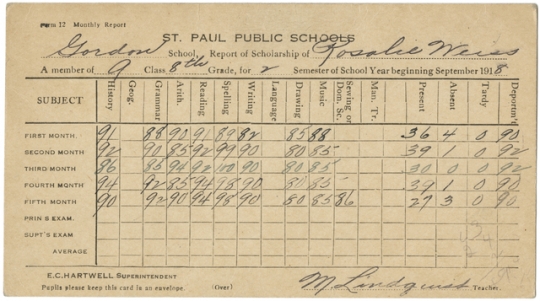 Form 12 Monthly Report
ST. PAUL PUBLIC SCHOOLS
Gordon School, Report of Scholarship of Rosalie Weiss
A member of 9 Class 8th Grade, for 2 Semester of School Year beginning September 1918
SUBJECT History Geog. Grammar Arith. Reading Spelling Writing Language Drawing Music Sewing or Dom. Sc. Man. Tr. Present Absent Tardy Deportm't
FIRST MONTH. 91 88 90 91 89 82 85 88 36 4 0 90
SECOND MONTH 92 90 85 92 99 90 80 85 39 1 0 92
THIRD MONTH 86 85 94 92 100 90 80 85 30 0 0 92
FOURTH MONTH 94 92 85 94 98 90 80 85 39 1 0 90
FIFTH MONTH 90 92 90 94 98 90 80 85 86 27 3 0 90
PRIN'S EXAM.
SUPT'S EXAM
AVERAGE
E.C. HARTWELL SUPERINTENDENT
Pupils please keep this card in an envelope. (Over) M Lindquist Teacher.